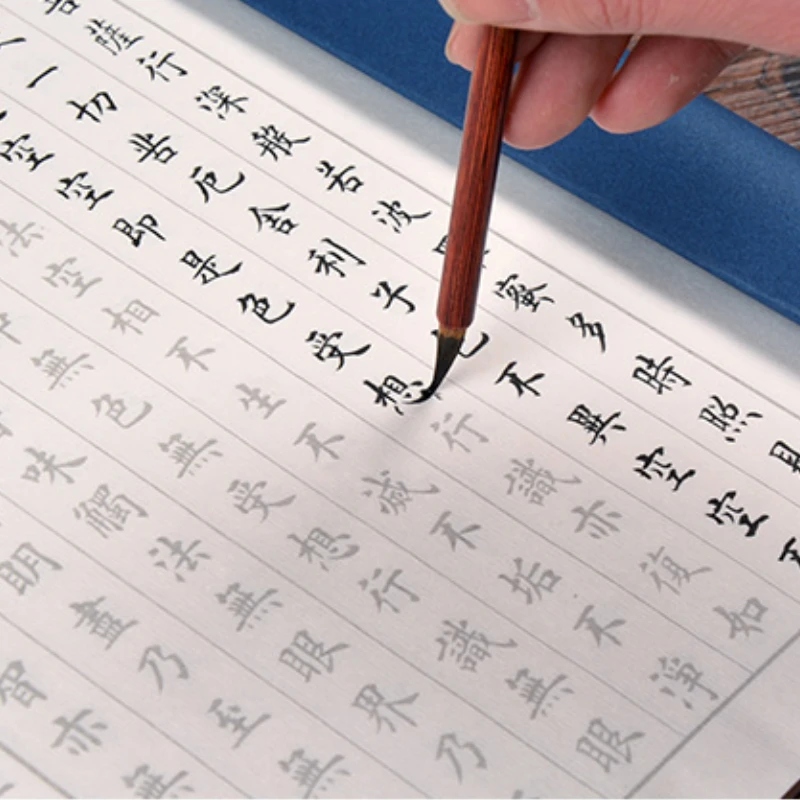 菩薩行深般若波蜜多時照見
一切苦厄舍利子色不異空空不
空空即是色受想行識亦復如
法空相不生不滅不垢不淨
中無色無受想行識無眼
味觸法無眼界乃
明盡乃至無
智亦無